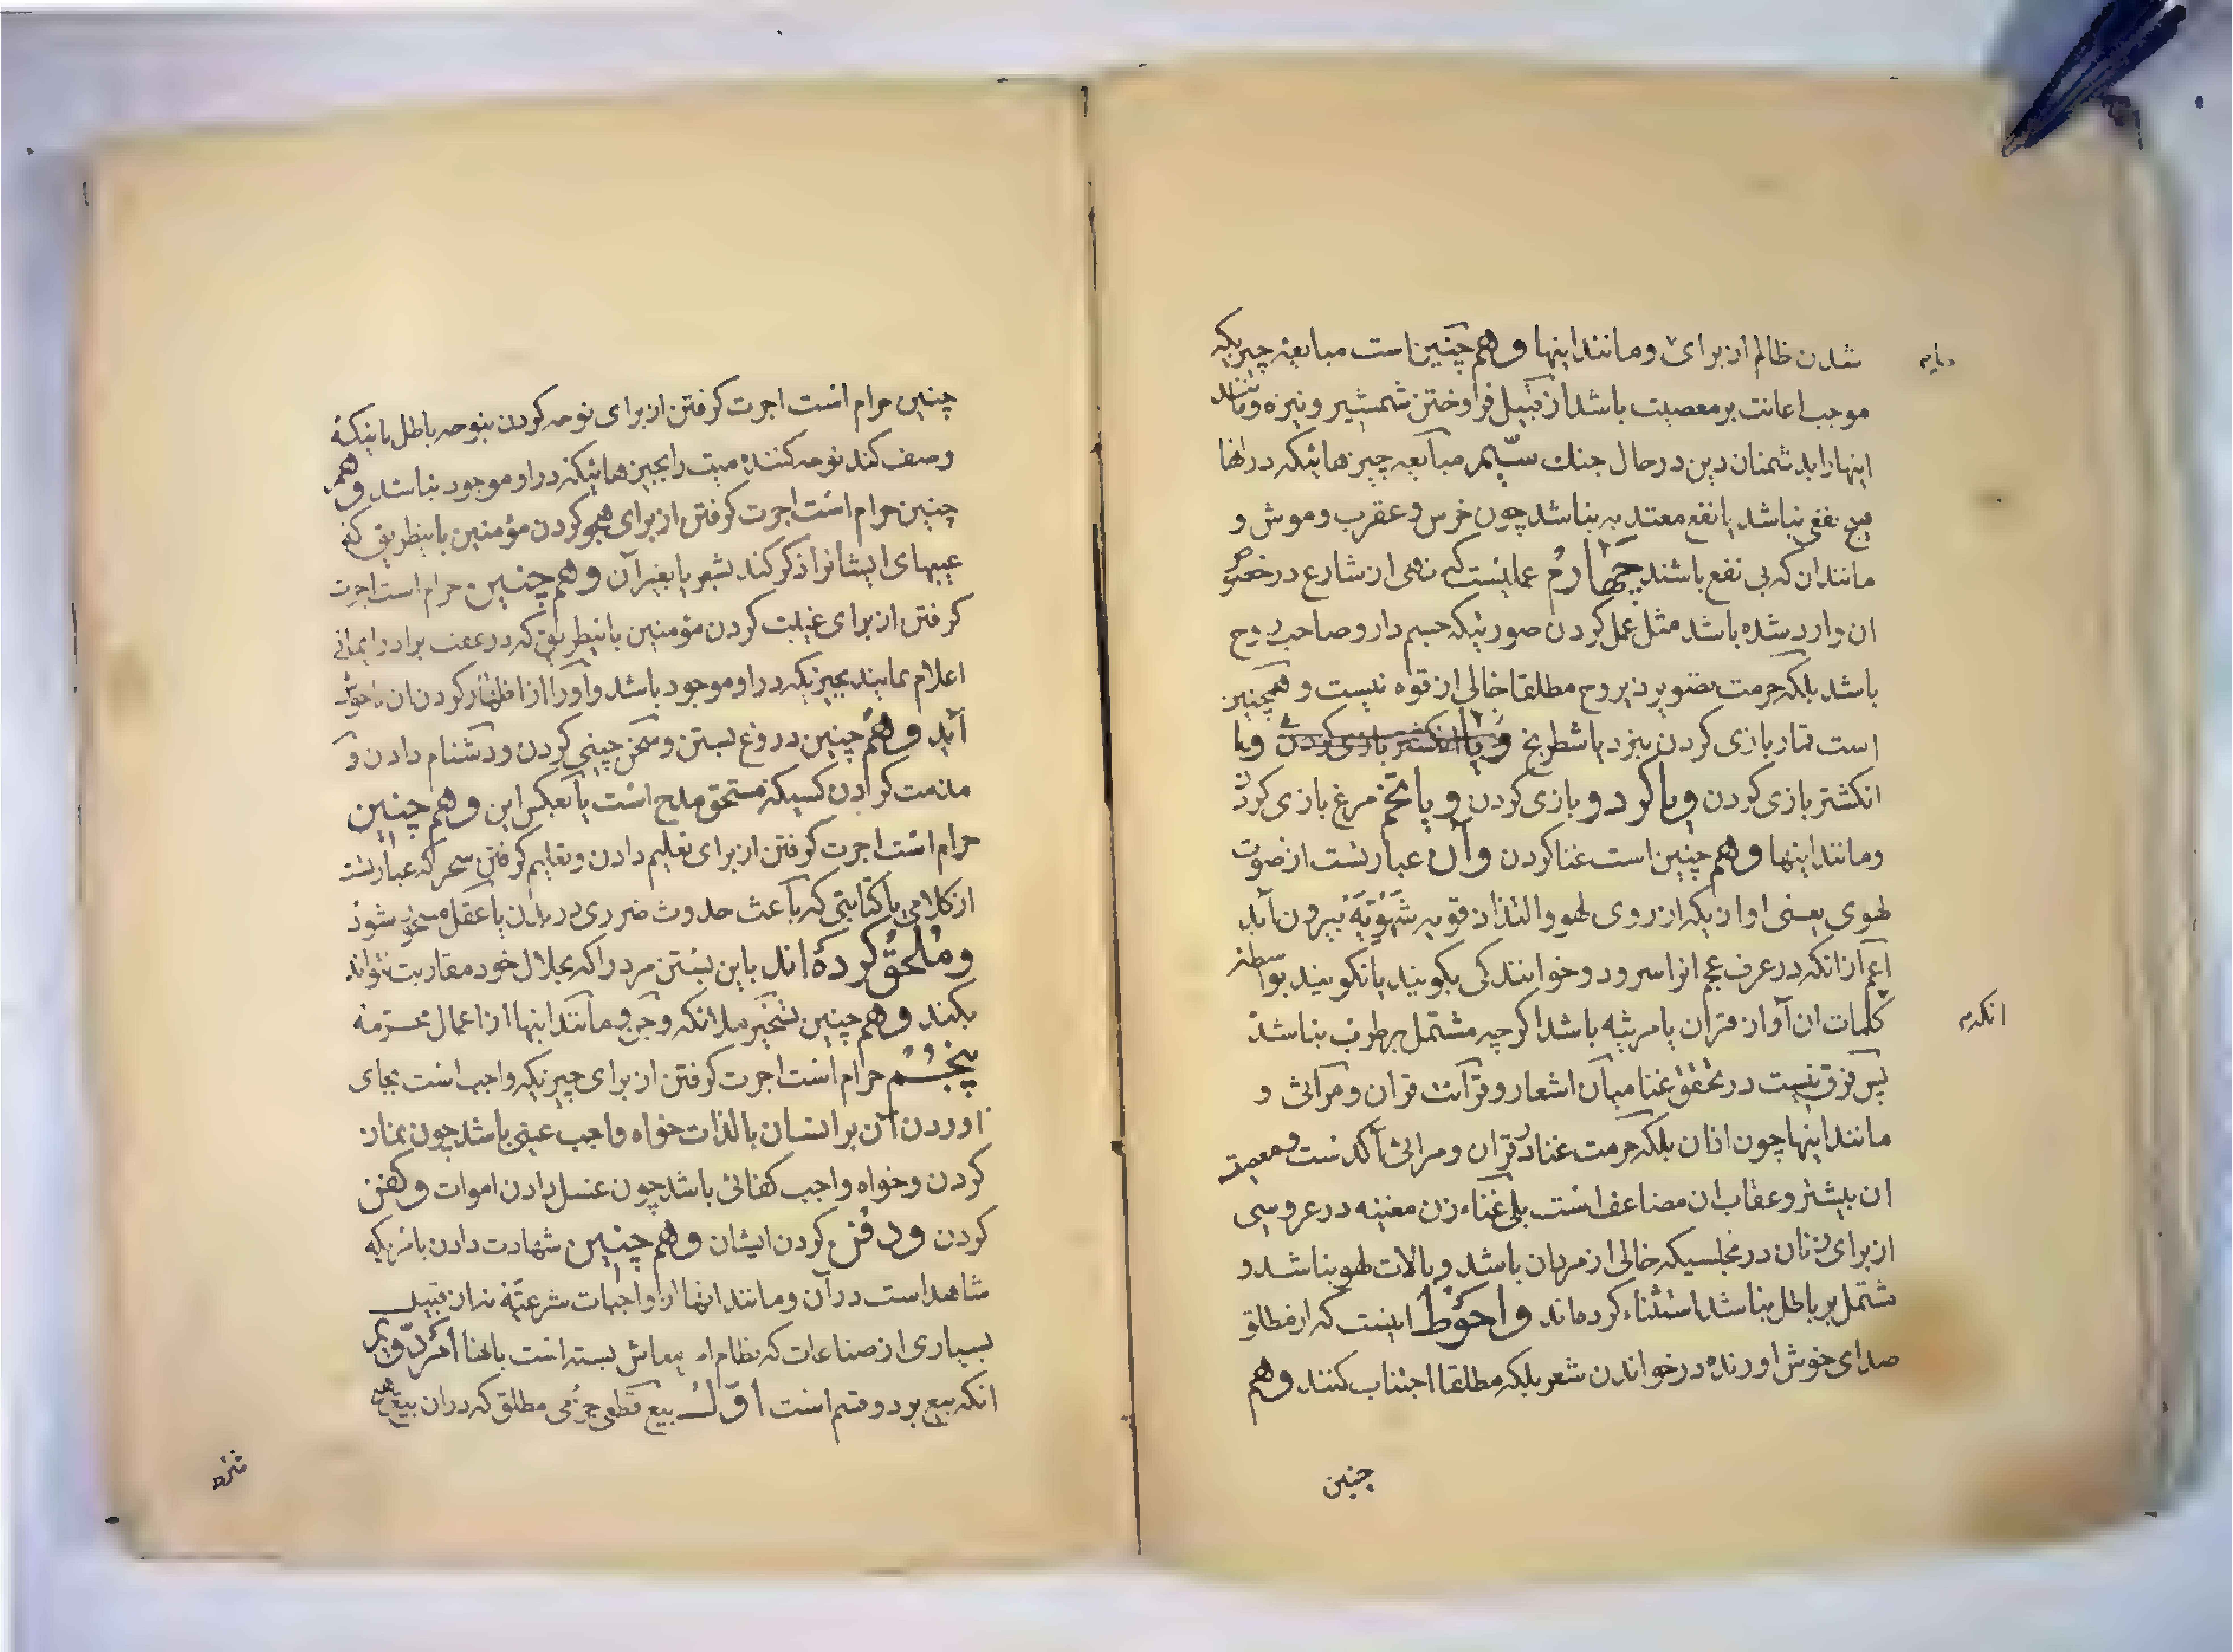 شدن ظالم از برای و مانند اینها و هم چنین است مبایعهٔ چیزیکه
موجب اعانت بر معصیت باشد از قبیل فراوختن شمشیر و نیزه و مانند
اینها را بدشمنان دین در حال جنك سیّم مبایعه چیزهائیکه در انها
هیچ نفعی نباشد یا نفع معتد به نباشد چون خرس و عقرب و موش و
مانند ان که بی نفع باشند چهارم عملیست که نهی از شارع در خصوص
ان وارد شده باشد مثل عمل کردن صورتیکه جسم دار و صاحب روح
باشد بلکه حرمت تصویر ذیروح مطلقا خالی از قوه نیست و همچنین
است قمار بازی کردن بنرد یا شطرنج و یا انکشتر بازی کردن و با
انکشتر بازی کردن و با کردو بازی کردن و با تخم مرغ بازی کردن
و مانند اینها و هم چنین است غنا کردن و آن عبارتست از صوت
لهوی یعنی اوازیکه از روی لهو و التذاذ قویه شهویّه بیرون آید
اعم از انکه در عرف عجم انرا سرود و خوانندکی بکویند یا نکویند بواسطه
کلمات ان آواز قران یا مرثیه باشد اکرچه مشتمل بر طرب نباشد
انکه
پس فرق نیست در تحقق غنا میان اشعار و قرائت قران و مراثی و
مانند اینها چون اذان بلکه حرمت غنا در قران و مراثی آکد است و معصیت
ان بیشتر و عقاب ان مضاعف است بلی غناء زن مغنیه در عروسی
از برای زنان در مجلسیکه خالی از مردان باشد و بالات لهو نباشد و
مشتمل بر باطل نباشد استثناء کرده‌اند و احوط اینست که از مطلق
صدای خوش اورنده در خواندن شعر بلکه مطلقا اجتناب کنند و هم
چنین
چنین حرام است اجرت کرفتن از برای نوحه کردن بنوحه باطل باینکه
وصف کند نوحه کننده میت را بچیزهائیکه در او موجود نباشد و هم
چنین حرام است اجرت کرفتن از برای هجو کردن مؤمنین باینطریق که
عیبهای ایشانرا ذکر کند بشعر یا بغیر آن و هم چنین حرام است اجرت
کرفتن از برای غیبت کردن مؤمنین باینطریق که در عقب برادر ایمانی
اعلام نمایند بچیزیکه در او موجود باشد و او را از اظهار کردن ان ناخوش
آید و هم چنین دروغ بستن و سخن چینی کردن و دشنام دادن و
مذمت کردن کسیکه مستحق مدح است یا بعکس این و هم چنین
حرام است اجرت کرفتن از برای تعلیم دادن و تعلیم کرفتن سحر که عبارتست
از کلامی یا کتابتی که باعث حدوث ضرری در بدن یا عقل مسحور شود
و ملحق کرده‌اند باین بستن مرد را که بحلال خود مقاربت نتواند
بکند و هم چنین تسخیر ملائکه و جن و مانند اینها از اعمال محرمه
پنجم حرام است اجرت کرفتن از برای چیزیکه واجب است بجای
اوردن آن بر انسان بالذات خواه واجب عینی باشد چون نماز
کردن و خواه واجب کفائی باشد چون غسل دادن اموات و کفن
کردن و دفن کردن ایشان و هم چنین شهادت دادن بانچیکه
شاهد است در آن و مانند انها از واجبات شرعیّه نه از قبیل
بسیاری از صناعات که نظام معاش بسته است بانها
انکه بیع بر دو قسم است اوّل بیع قطعی جزمی مطلق که در ان بیع